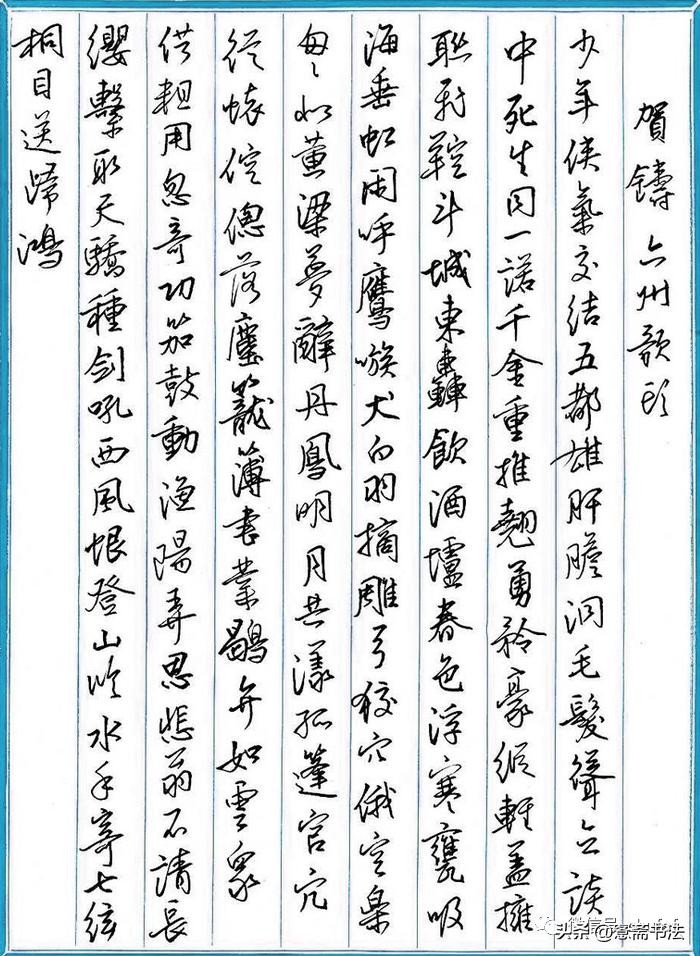 賀鑄 六州歌頭
少年俠氣交結五都雄肝膽洞毛髮聳立談
中死生同一諾千金重推翹勇矜豪縱輕蓋擁
聯飛鞚斗城東轟飲酒壚春色浮寒甕吸
海垂虹閑呼鷹嗾犬白羽摘雕弓狡穴俄空樂
匆々似黃粱夢辭丹鳳明月共漾孤蓬官冗
從懷倥傯落塵籠簿書叢鶡弁如雲眾
供粗用忽奇功笳鼓動漁陽弄思悲翁不請長
纓繫取天驕種劍吼西風恨登山臨水手寄七絃
桐目送歸鴻
头条@憲斋书法